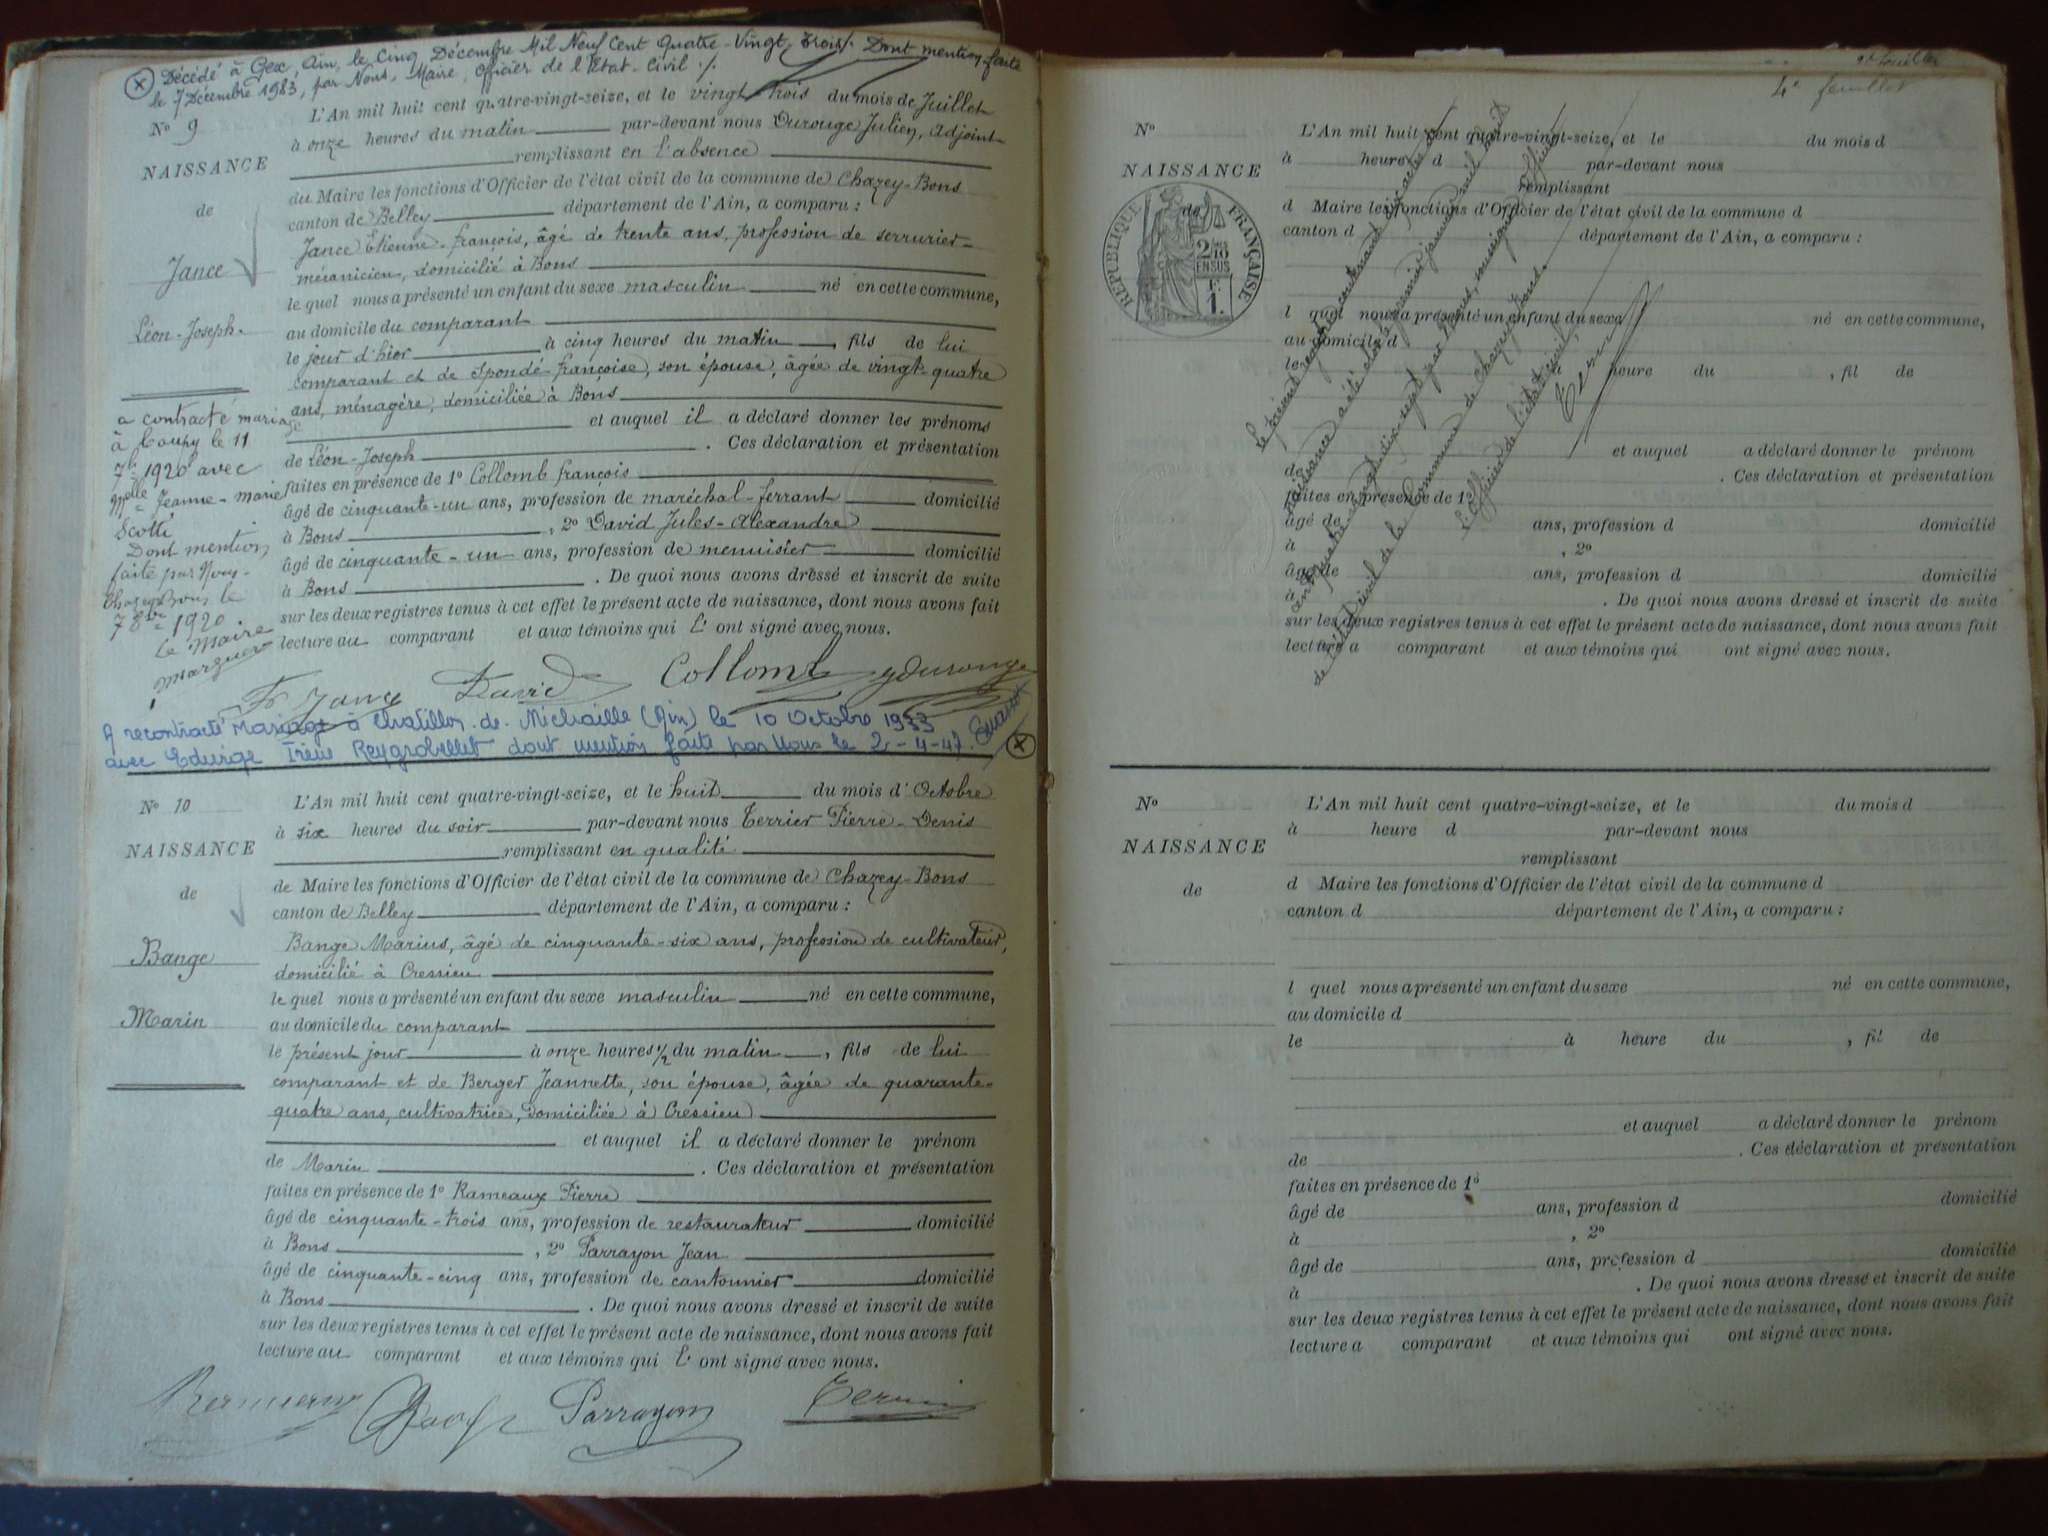 Décédé à Gex, Ain, le Cinq Décembre Mil Neuf Cent Quatre-Vingt-Trois. Dont mention faite
le 7 Décembre 1983, par Nous, Maire, Officier de l'Etat-Civil ./.
N° 9
NAISSANCE
de
Jance
Léon-Joseph.
L'An mil huit cent quatre-vingt-seize, et le vingt trois du mois de Juillet
à onze heures du matin par-devant nous Durouge Julien, adjoint
remplissant en l'absence
du Maire les fonctions d'Officier de l'état civil de la commune de Chazey-Bons
canton de Belley département de l'Ain, a comparu :
Jance Etienne-françois, âgé de trente ans, profession de serrurier-
mécanicien, domicilié à Bons
le quel nous a présenté un enfant du sexe masculin né en cette commune,
au domicile du comparant
le jour d'hier à cinq heures du matin, fils de lui
comparant et de Spondé françoise, son épouse, âgée de vingt-quatre
ans, ménagère, domiciliée à Bons
et auquel il a déclaré donner les prénoms
de Léon-Joseph. Ces déclaration et présentation
faites en présence de 1° Collomb françois
âgé de cinquante-un ans, profession de maréchal-ferrant domicilié
à Bons, 2° David Jules-Alexandre
âgé de cinquante-un ans, profession de menuisier domicilié
à Bons. De quoi nous avons dressé et inscrit de suite
sur les deux registres tenus à cet effet le présent acte de naissance, dont nous avons fait
lecture au comparant et aux témoins qui l' ont signé avec nous.
a contracté mariage
à Coupy le 11
7bre 1920 avec
Melle Jeanne-marie
Scotti
Dont mention
faite par Nous
Chazey Bons le
7 8bre 1920
Le Maire
F. Jance David Collomb J Durouge
A recontracté Mariage à Chatillon-de-Michaille (Ain) le 10 Octobre 1933
avec Edwige Irène Reygrobellet dont mention faite par Nous le 2-4-47.
N° 10
NAISSANCE
de
Bange
Marin
L'An mil huit cent quatre-vingt-seize, et le huit du mois d'Octobre
à six heures du soir par-devant nous Terrier Pierre-Denis
remplissant en qualité
de Maire les fonctions d'Officier de l'état civil de la commune de Chazey-Bons
canton de Belley département de l'Ain, a comparu :
Bange Marius, âgé de cinquante-six ans, profession de cultivateur,
domicilié à Cressieu
le quel nous a présenté un enfant du sexe masculin né en cette commune,
au domicile du comparant
le présent jour à onze heures 1/2 du matin, fils de lui
comparant et de Berger Jeannette, son épouse, âgée de quarante-
quatre ans, cultivatrice, domiciliée à Cressieu
et auquel il a déclaré donner le prénom
de Marin. Ces déclaration et présentation
faites en présence de 1° Rameaux Pierre
âgé de cinquante-trois ans, profession de restaurateur domicilié
à Bons, 2° Parrayon Jean
âgé de cinquante-cinq ans, profession de cantonnier domicilié
à Bons. De quoi nous avons dressé et inscrit de suite
sur les deux registres tenus à cet effet le présent acte de naissance, dont nous avons fait
lecture au comparant et aux témoins qui l' ont signé avec nous.
Parrayon Terrier
4e feuillet
N°
NAISSANCE
de
RÉPUBLIQUE FRANÇAISE
2/10 EN SUS
F.
1.
L'An mil huit cent quatre-vingt-seize, et le du mois d
à heure d par-devant nous
remplissant
d Maire les fonctions d'Officier de l'état civil de la commune d
canton d département de l'Ain, a comparu :
l quel nous a présenté un enfant du sexe né en cette commune,
au domicile d
le à heure du , fil de
et auquel a déclaré donner le prénom
de . Ces déclaration et présentation
faites en présence de 1°
âgé de ans, profession d domicilié
à , 2°
âgé de ans, profession d domicilié
à . De quoi nous avons dressé et inscrit de suite
sur les deux registres tenus à cet effet le présent acte de naissance, dont nous avons fait
lecture a comparant et aux témoins qui ont signé avec nous.
le présent registre contenant actes de
naissance a été clos le premier janvier mil huit
cent quatre-vingt-dix-sept par Nous, soussigné, Officier
de l'état civil de la Commune de Chazey-Bons.
L'Officier de l'état civil,
Terrier
N°
NAISSANCE
de
L'An mil huit cent quatre-vingt-seize, et le du mois d
à heure d par-devant nous
remplissant
d Maire les fonctions d'Officier de l'état civil de la commune d
canton d département de l'Ain, a comparu :
l quel nous a présenté un enfant du sexe né en cette commune,
au domicile d
le à heure du , fil de
et auquel a déclaré donner le prénom
de . Ces déclaration et présentation
faites en présence de 1°
âgé de ans, profession d domicilié
à , 2°
âgé de ans, profession d domicilié
à . De quoi nous avons dressé et inscrit de suite
sur les deux registres tenus à cet effet le présent acte de naissance, dont nous avons fait
lecture a comparant et aux témoins qui ont signé avec nous.